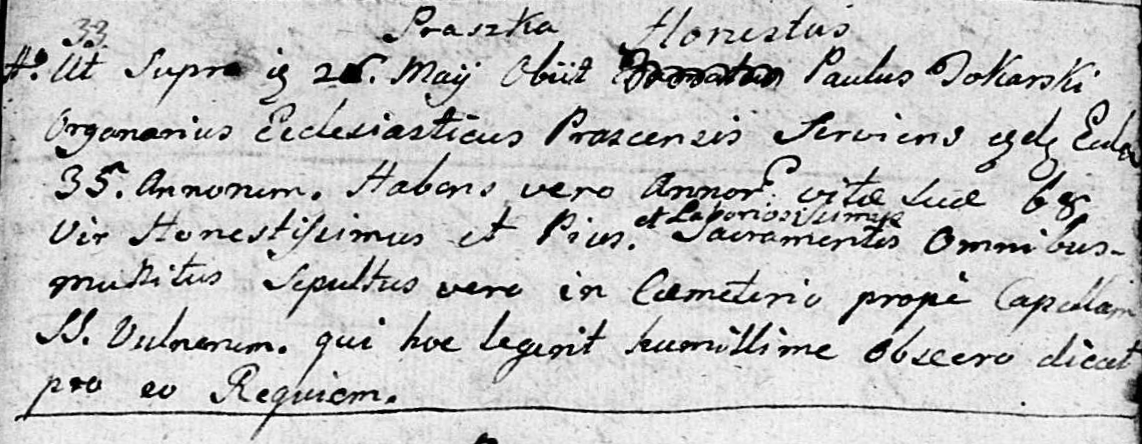 Praszka Honestus
33.
Ut Supra 25. Maÿ Obiit Paulus Tokarski
Organarius Ecclesiasticus Prascensis Serviens
35. Annorum. Habens vero Annor. vitæ suæ 68
et Laboriosissimus
Vir Honestissimus et Pius. Sacramentis Omnibus
munitus Sepultus vero in Cæmeterio propè Capellam
SS. Vulnerum. qui hoc legerit humillime obsecro dicat
pro eo Requiem.